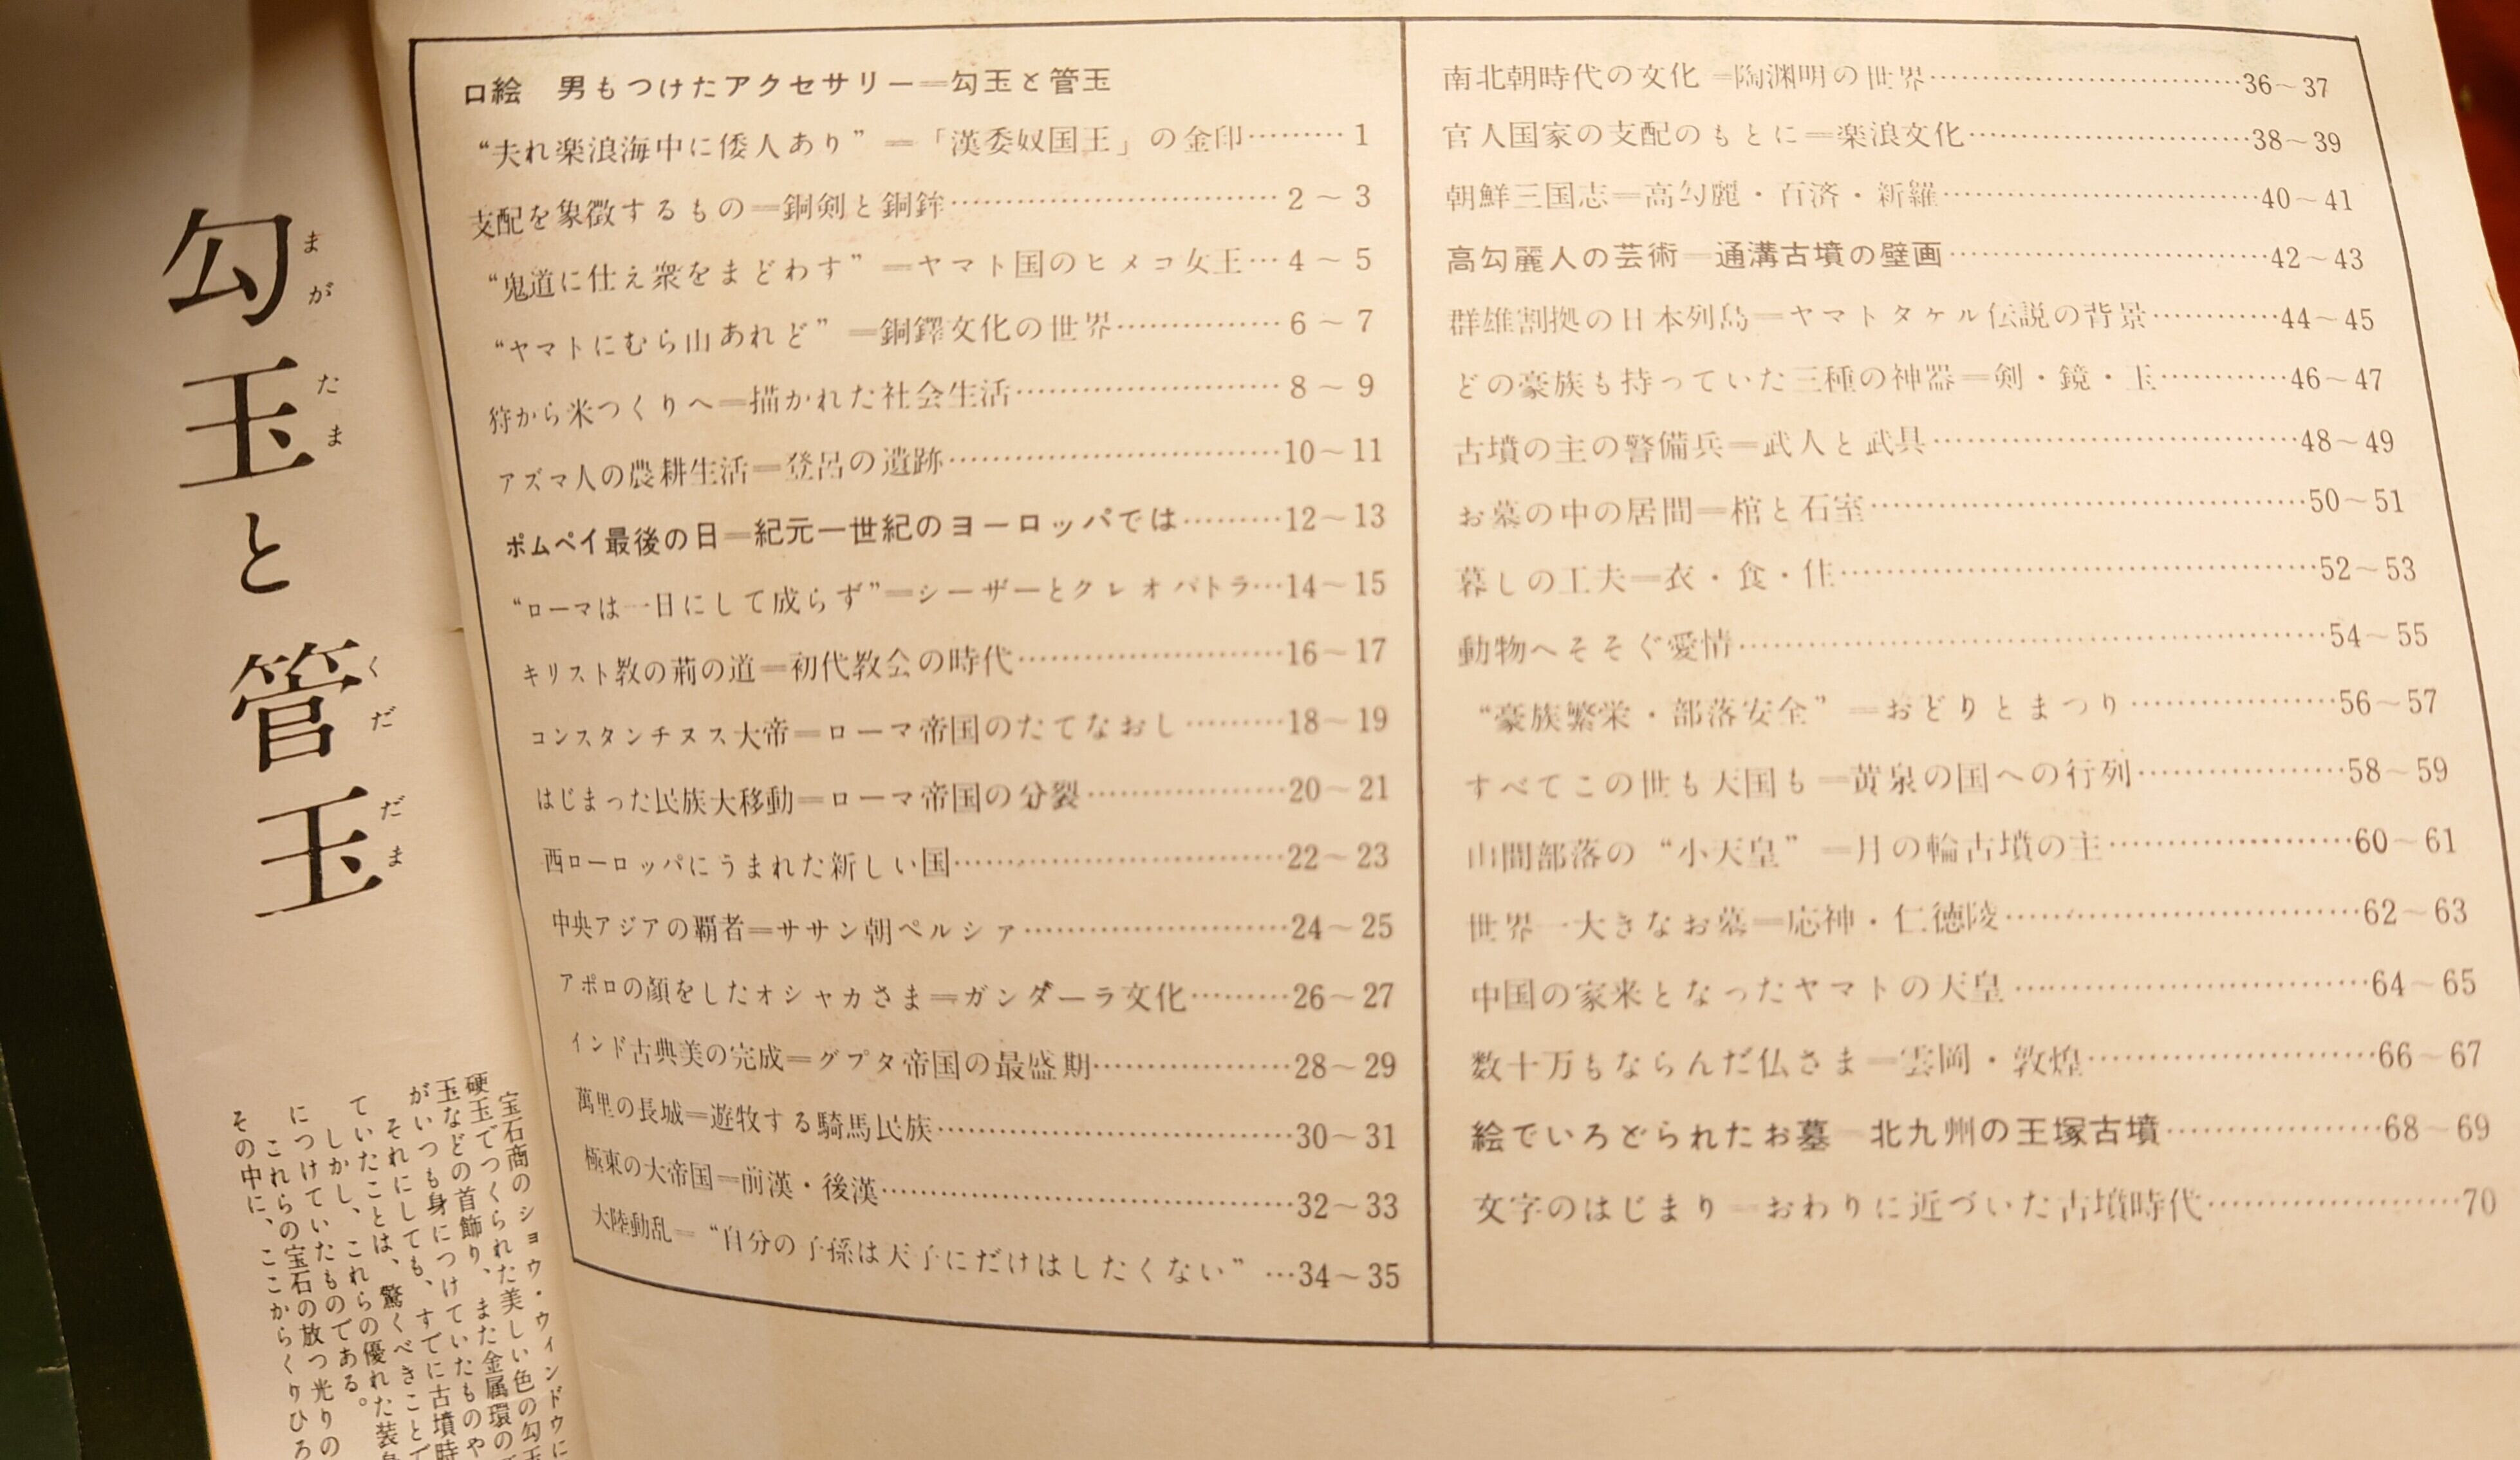 勾玉と管玉
まがたま
くだだま
宝石商のショウ・ウィンドウに
硬玉でつくられた美しい色の勾玉
玉などの首飾り、また金属環の
がいつも身につけていたものや
それにしても、すでに古墳時
ていたことは、驚くべきことで
しかし、これらの優れた装身
につけていたものである。
これらの宝石の放つ光りの
その中に、ここからくりひろ
口絵　男もつけたアクセサリー＝勾玉と管玉
“夫れ楽浪海中に倭人あり”＝「漢委奴国王」の金印………1
支配を象徴するもの＝銅剣と銅鉾………2～3
“鬼道に仕え衆をまどわす”＝ヤマト国のヒメコ女王…4～5
“ヤマトにむら山あれど”＝銅鐸文化の世界………6～7
狩から米つくりへ＝描かれた社会生活………8～9
アズマ人の農耕生活＝登呂の遺跡………10～11
ポムペイ最後の日＝紀元一世紀のヨーロッパでは………12～13
“ローマは一日にして成らず”＝シーザーとクレオパトラ…14～15
キリスト教の荊の道＝初代教会の時代………16～17
コンスタンチヌス大帝＝ローマ帝国のたてなおし………18～19
はじまった民族大移動＝ローマ帝国の分裂………20～21
西ローロッパにうまれた新しい国………22～23
中央アジアの覇者＝ササン朝ペルシァ………24～25
アポロの顔をしたオシャカさま＝ガンダーラ文化………26～27
インド古典美の完成＝グプタ帝国の最盛期………28～29
萬里の長城＝遊牧する騎馬民族………30～31
極東の大帝国＝前漢・後漢………32～33
大陸動乱＝“自分の子孫は天子にだけはしたくない”…34～35
南北朝時代の文化＝陶淵明の世界………36～37
官人国家の支配のもとに＝楽浪文化………38～39
朝鮮三国志＝高勾麗・百済・新羅………40～41
高勾麗人の芸術＝通溝古墳の壁画………42～43
群雄割拠の日本列島＝ヤマトタケル伝説の背景………44～45
どの豪族も持っていた三種の神器＝剣・鏡・玉………46～47
古墳の主の警備兵＝武人と武具………48～49
お墓の中の居間＝棺と石室………50～51
暮しの工夫＝衣・食・住………52～53
動物へそそぐ愛情………54～55
“豪族繁栄・部落安全”＝おどりとまつり………56～57
すべてこの世も天国も＝黄泉の国への行列………58～59
山間部落の“小天皇”＝月の輪古墳の主………60～61
世界一大きなお墓＝応神・仁徳陵………62～63
中国の家来となったヤマトの天皇………64～65
数十万もならんだ仏さま＝雲岡・敦煌………66～67
絵でいろどられたお墓＝北九州の王塚古墳………68～69
文字のはじまり＝おわりに近づいた古墳時代………70